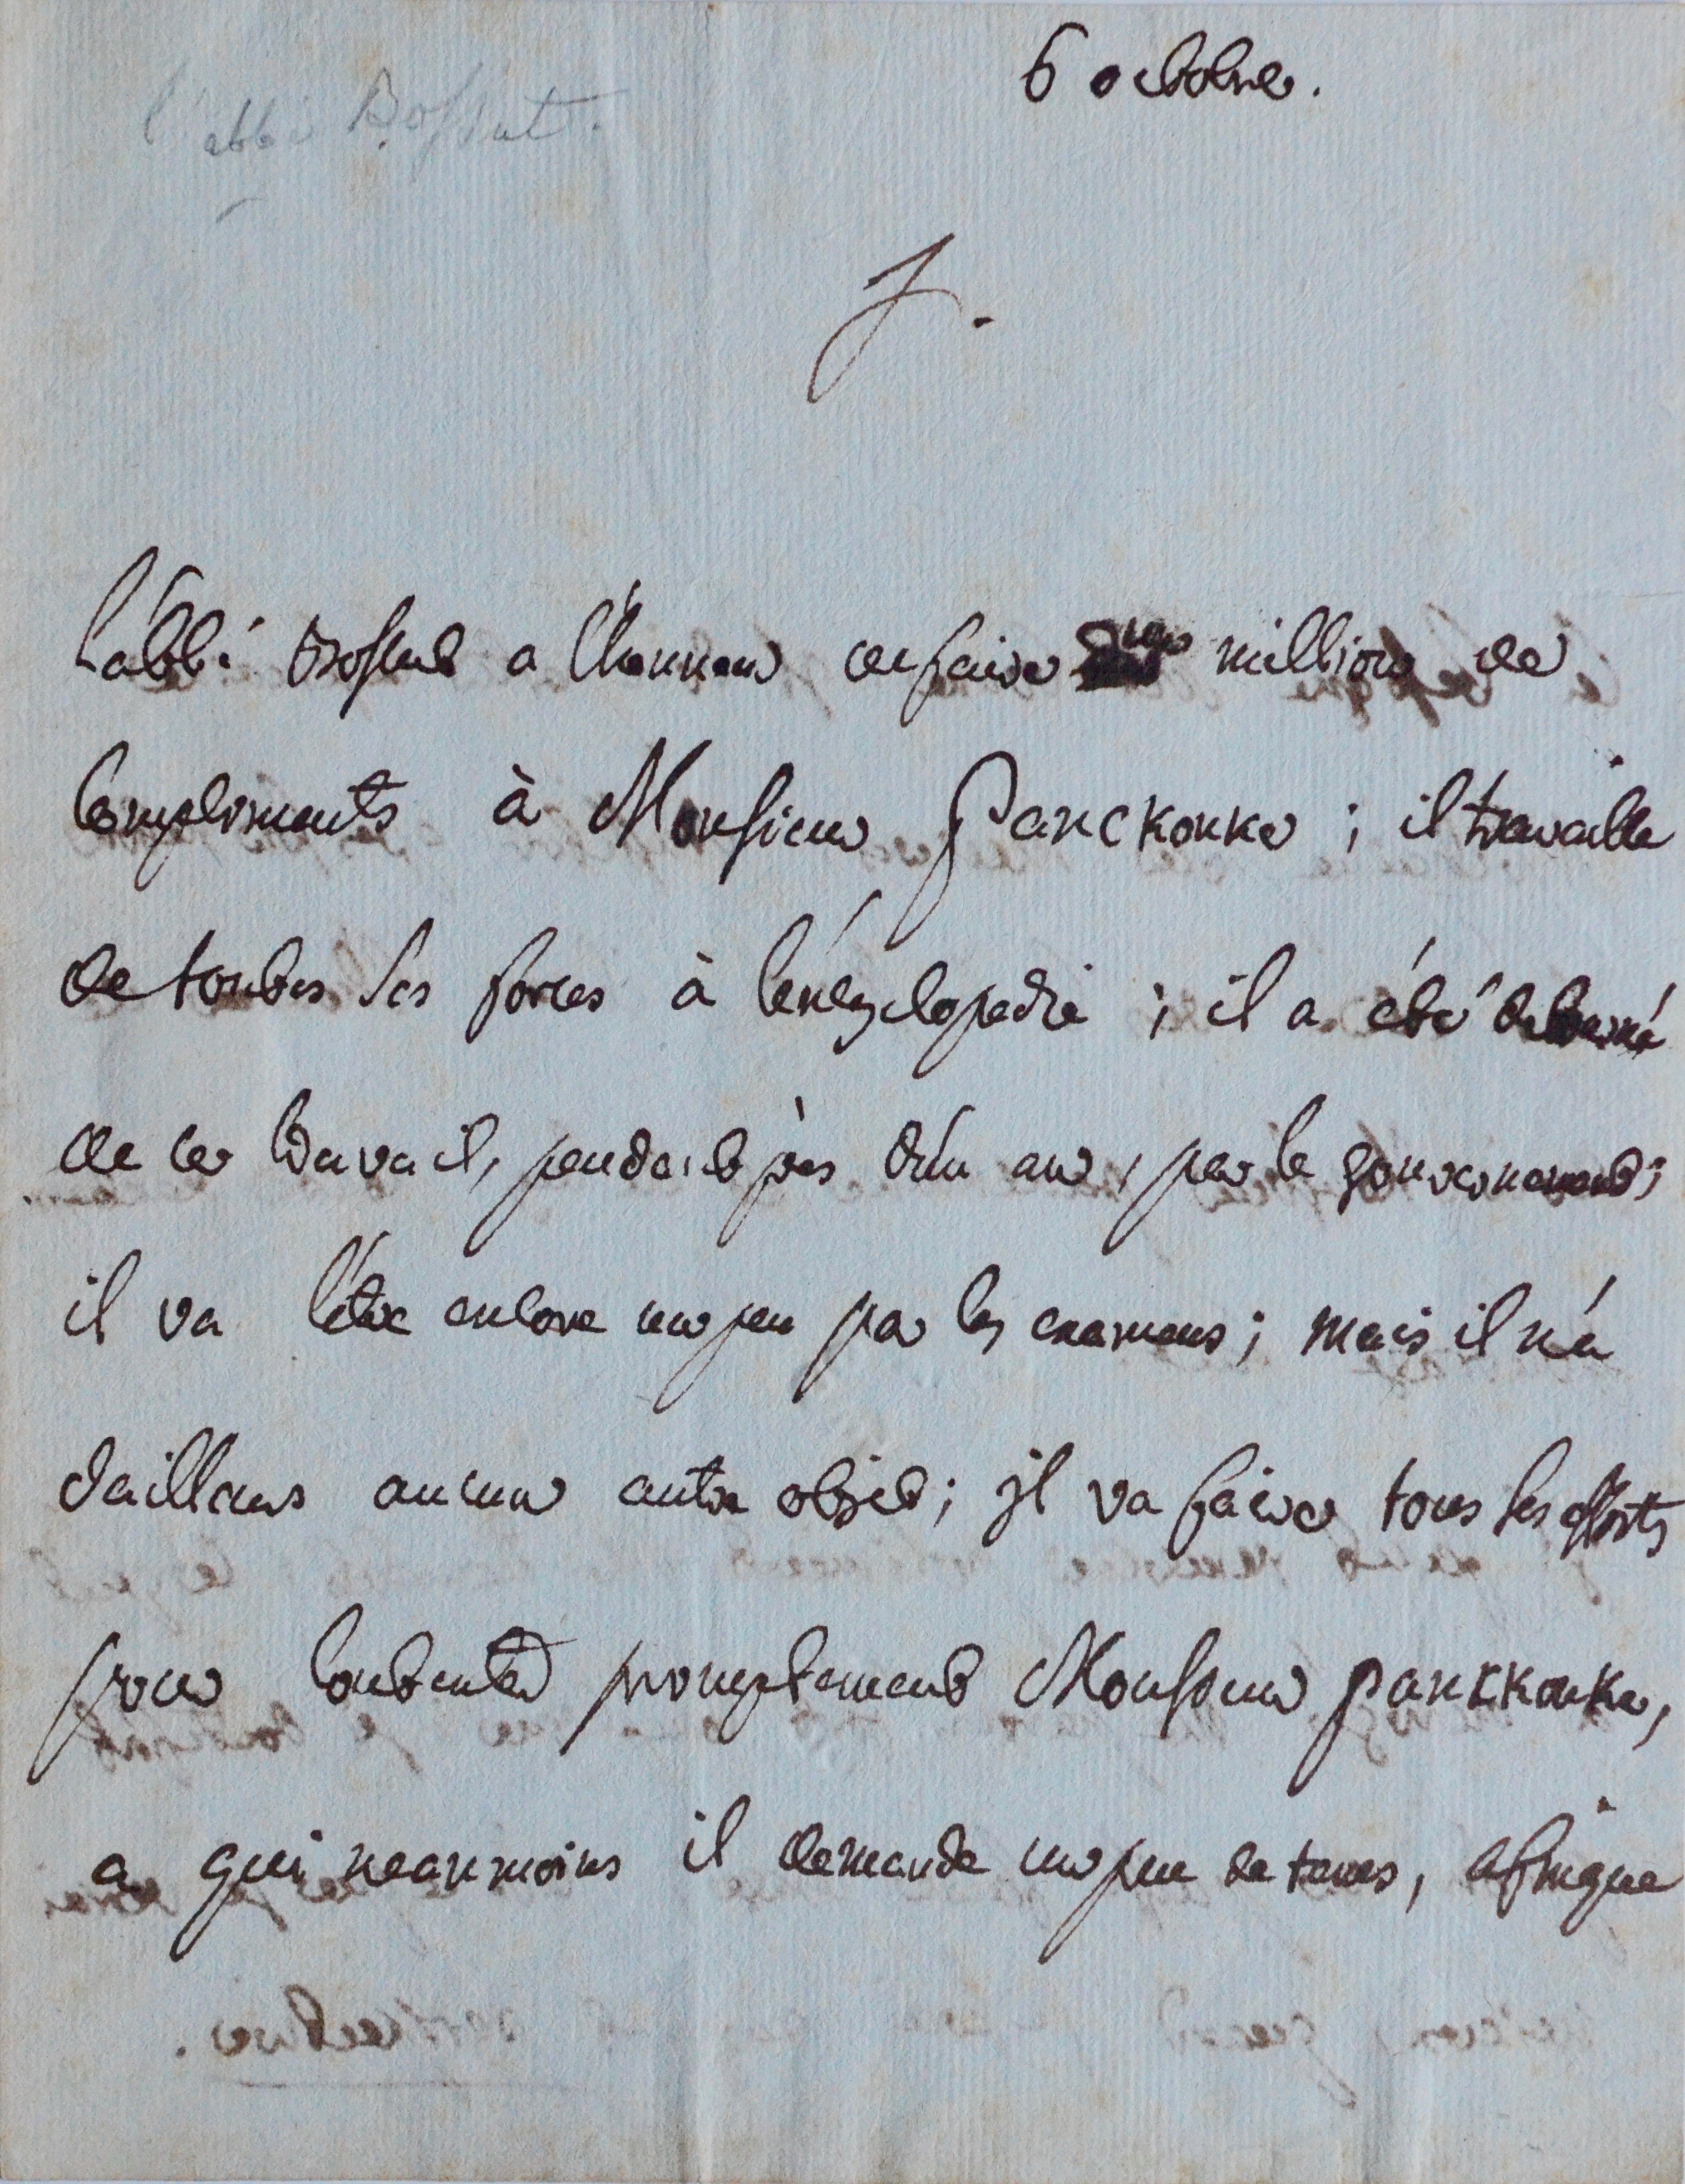 6 octobre.
l'abbé Bossut.
J.
L'abbé Bossut a l'honneur de faire un million de
compliments à Monsieur Panckouke ; il travaille
de toutes ses forces à l'encyclopedie ; il a été détourné
de ce travail, pendant près d'un an, par le gouvernement ;
il va l'être encore un peu par les examens ; mais il n'a
dailleurs aucun autre objet ; il va faire tous ses efforts
pour contenter promptement Monsieur panckouke,
a qui neanmoins il demande un peu de tems, afin que